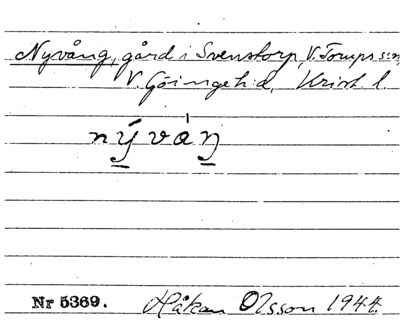 Nyvång, gård i Svenstorp, V. Torups s:n,
V. Göinge h:d, Krist. l.
nývàŋ
Nr 5369. Håkan Olsson 1944.